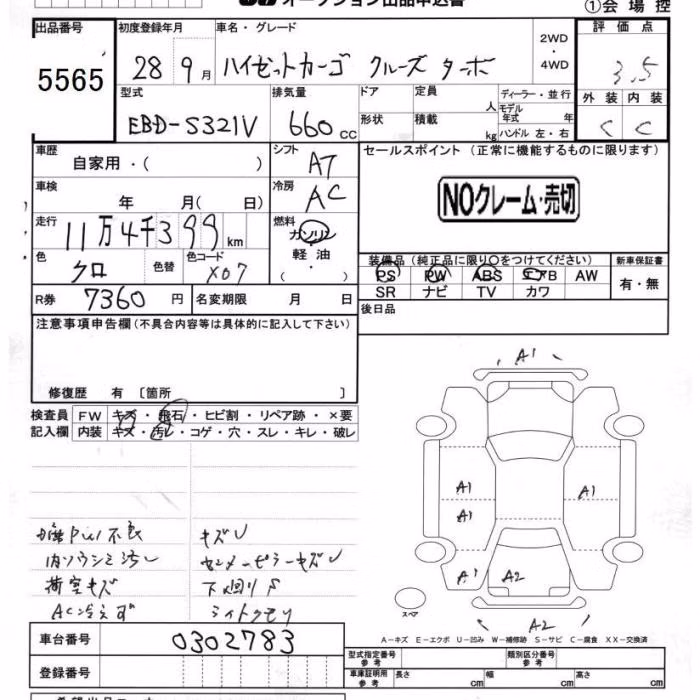 オークション出品申込書
①会場控
出品番号
5565
初度登録年月
28 9月
車名・グレード
ハイゼットカーゴ クルーズ ターボ
2WD・4WD
評価点
3.5
外装 内装
C C
型式
EBD-S321V
排気量
660cc
ドア
形状
定員 人
積載 kg
ディーラー・並行
モデル年式 年
ハンドル 左・右
車歴
自家用・( )
シフト
AT
車検
年 月( 日)
冷房
AC
走行
11万4千399km
燃料
ガソリン・軽油・( )
色
クロ
色替
色コード
X07
R券 7360円
名変期限 月 日
セールスポイント (正常に機能するものに限ります)
NOクレーム・売切
装備品(純正品に限り○をつけてください)
新車保証書
有・無
PS PW ABS エアB AW
SR ナビ TV カワ
後日品
注意事項申告欄(不具合内容等は具体的に記入して下さい)
修復歴 有 〔箇所 〕
検査員記入欄
FW キズ・飛石・ヒビ割・リペア跡・×要
内装 キズ・汚レ・コゲ・穴・スレ・キレ・破レ
不良 キズレ
荷室キズ 下廻りS
AC冷えず ライトクモリ
A1
A1
A1
A1
A1 A2
A2
スペア
A−キズ E−エクボ U−凹み W−補修跡 S−サビ C−腐食 XX−交換済
車台番号 0302783
登録番号
型式指定番号 参考
類別区分番号 参考
車庫証明用 参考 長さ cm 幅 cm 高さ cm